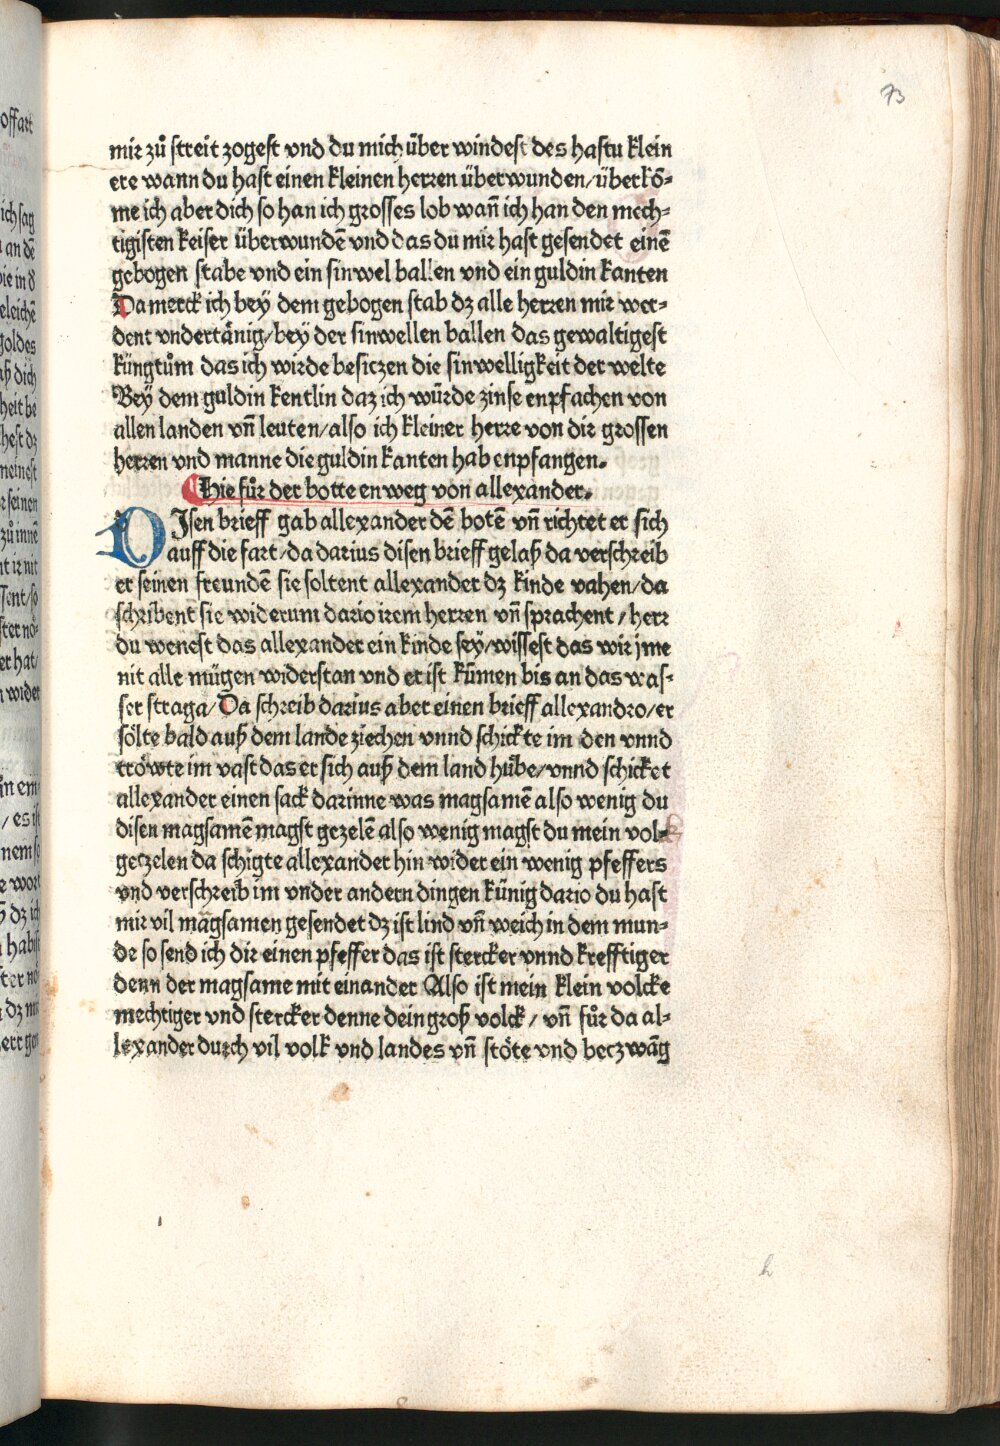 73
mir zů streit zogest vnd du mich über windest des hastu klein
ere wann du hast einen kleinen herren überwunden/überkō=
me ich aber dich so han ich grosses lob wañ ich han den mech=
tigisten keiser überwundē vnd das du mir hast gesendet einē
gebogen stabe vnd ein sinwel ballen vnd ein guldin kanten
Da merck ich bey dem gebogen stab dz alle herren mir wer=
dent vndertånig/bey der sinwellen ballen das gewaltigest
küngtům das ich wirde besiczen die sinwelligkeit der welte
Bey dem guldin kentlin daz ich würde zinse enpfachen von
allen landen vñ leuten/also ich kleiner herre von dir grossen
herren vnd manne die guldin kanten hab enpfangen.
Hie fůr der botte enweg von allexander.
DIsen brieff gab allexander dē botē vñ richtet er sich
auff die fart/da darius disen brieff gelaß da verschreib
er seinen freundē sie soltent allexander dz kinde vahen/da
schribent sie widerum dario irem herren vñ sprachent/herr
du wenest das allexander ein kinde sey/wissest das wir jme
nit alle mügen widerstan vnd er ist kumen bis an das was=
ser straga/Da schreib darius aber einen brieff allexandro/er
sölte bald auß dem lande ziechen vnnd schickte im den vnnd
tröwte im vast das er sich auß dem land hübe/vnnd schicket
allexander einen sack darinne was magsamē also wenig du
disen magsamē magst gezelē also wenig magst du mein volk
geczelen da schigte allexander hin wider ein wenig pfeffers
vnd verschreib im vnder andern dingen künig dario du hast
mir vil mägsamen gesendet dz ist lind vñ weich in dem mun=
de so send ich dir einen pfeffer das ist stercker vnnd krefftiger
denn der magsame mit einander Also ist mein klein volcke
mechtiger vnd stercker denne dein groß volck/vñ fůr da al=
lexander durch vil volk vnd landes vñ störe vnd beczwāg
h